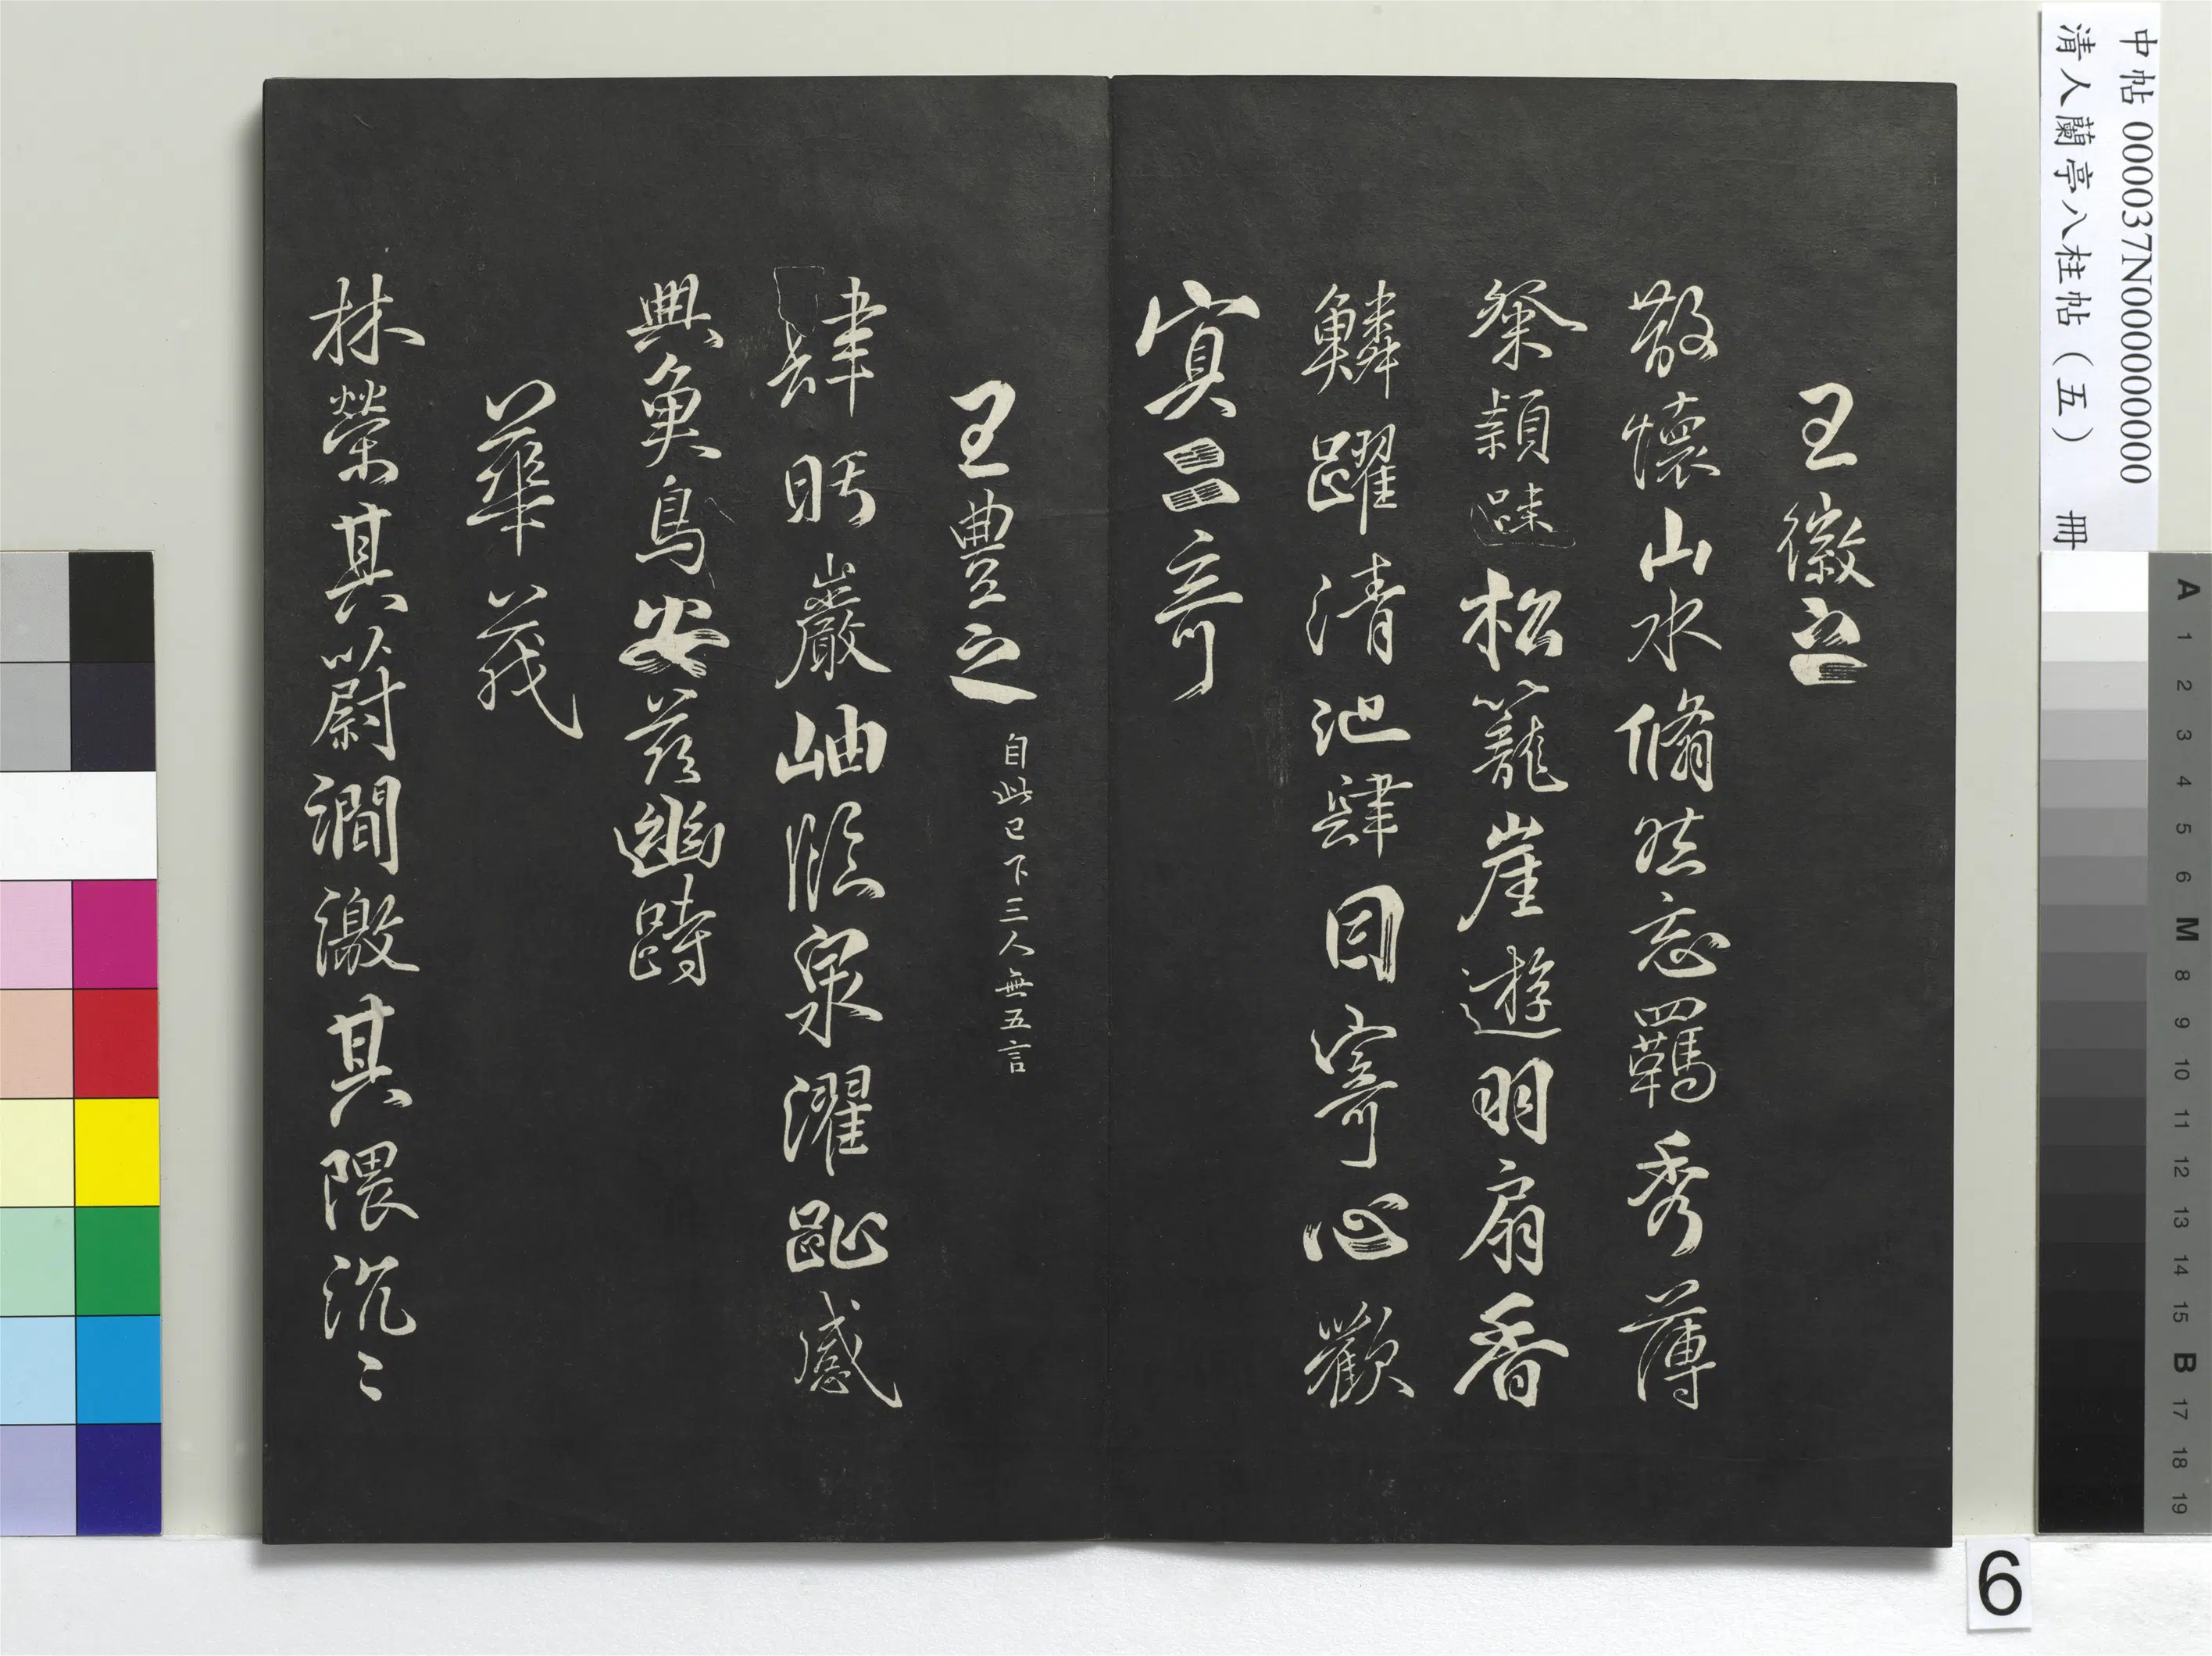 中帖 000037N000000000
清人蘭亭八柱帖（五） 冊
王徽之
散懷山水翛然忘羈秀薄
粲穎疎松籠崖遊羽扇香
鱗躍清池肆目寄心歡
寘二奇
王豊之 自此已下三人無五言
肆眄巖岫臨泉濯趾感
興魚鳥安茲幽跱
華茂
林榮其蔚澗激其隈汎〻
A 1 2 3 4 5 6 M 8 9 10 11 12 13 14 15 B 17 18 19
6